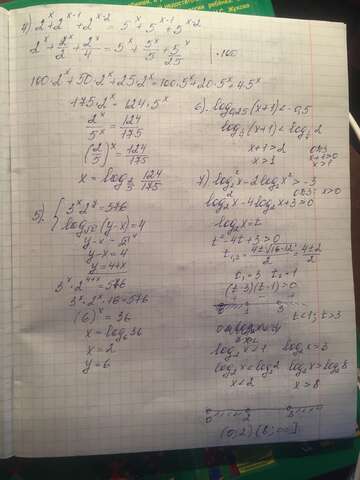 4) 2^x + 2^(x-1) + 2^(x-2) = 5^x + 5^(x-1) + 5^(x-2)
2^x + 2^x/2 + 2^x/4 = 5^x + 5^x/5 + 5^x/25 | ·100
100·2^x + 50·2^x + 25·2^x = 100·5^x + 20·5^x + 4·5^x
175·2^x = 124·5^x
2^x/5^x = 124/175
(2/5)^x = 124/175
x = log_(2/5) 124/175
5) { 3^x·2^y = 576
log_√2 (y-x) = 4
y-x = √2^4
y-x = 4
y = 4+x
3^x·2^(4+x) = 576
3^x·2^x·16 = 576
(6)^x = 36
x = log_6 36
x = 2
y = 6
6) log_0,25 (x+1) < -0,5
x+1 > 2
x > 1
ОДЗ:
x+1 > 0
7) log_2^2 x - 2log_2 x^2 > -3
ОДЗ: x > 0
log_2^2 x - 4log_2 x + 3 > 0
log_2 x = t
t^2 - 4t + 3 > 0
t_1,2 = (4±√16-12)/2 = (4±2)/2
t_1 = 3 t_2 = 1
(t-3)(t-1) > 0
t < 1; t > 3
log_2 x < 1 log_2 x > 3
log_2 x < log_2 2 log_2 x > log_2 8
x < 2 x > 8
(0;2) (8;∞)